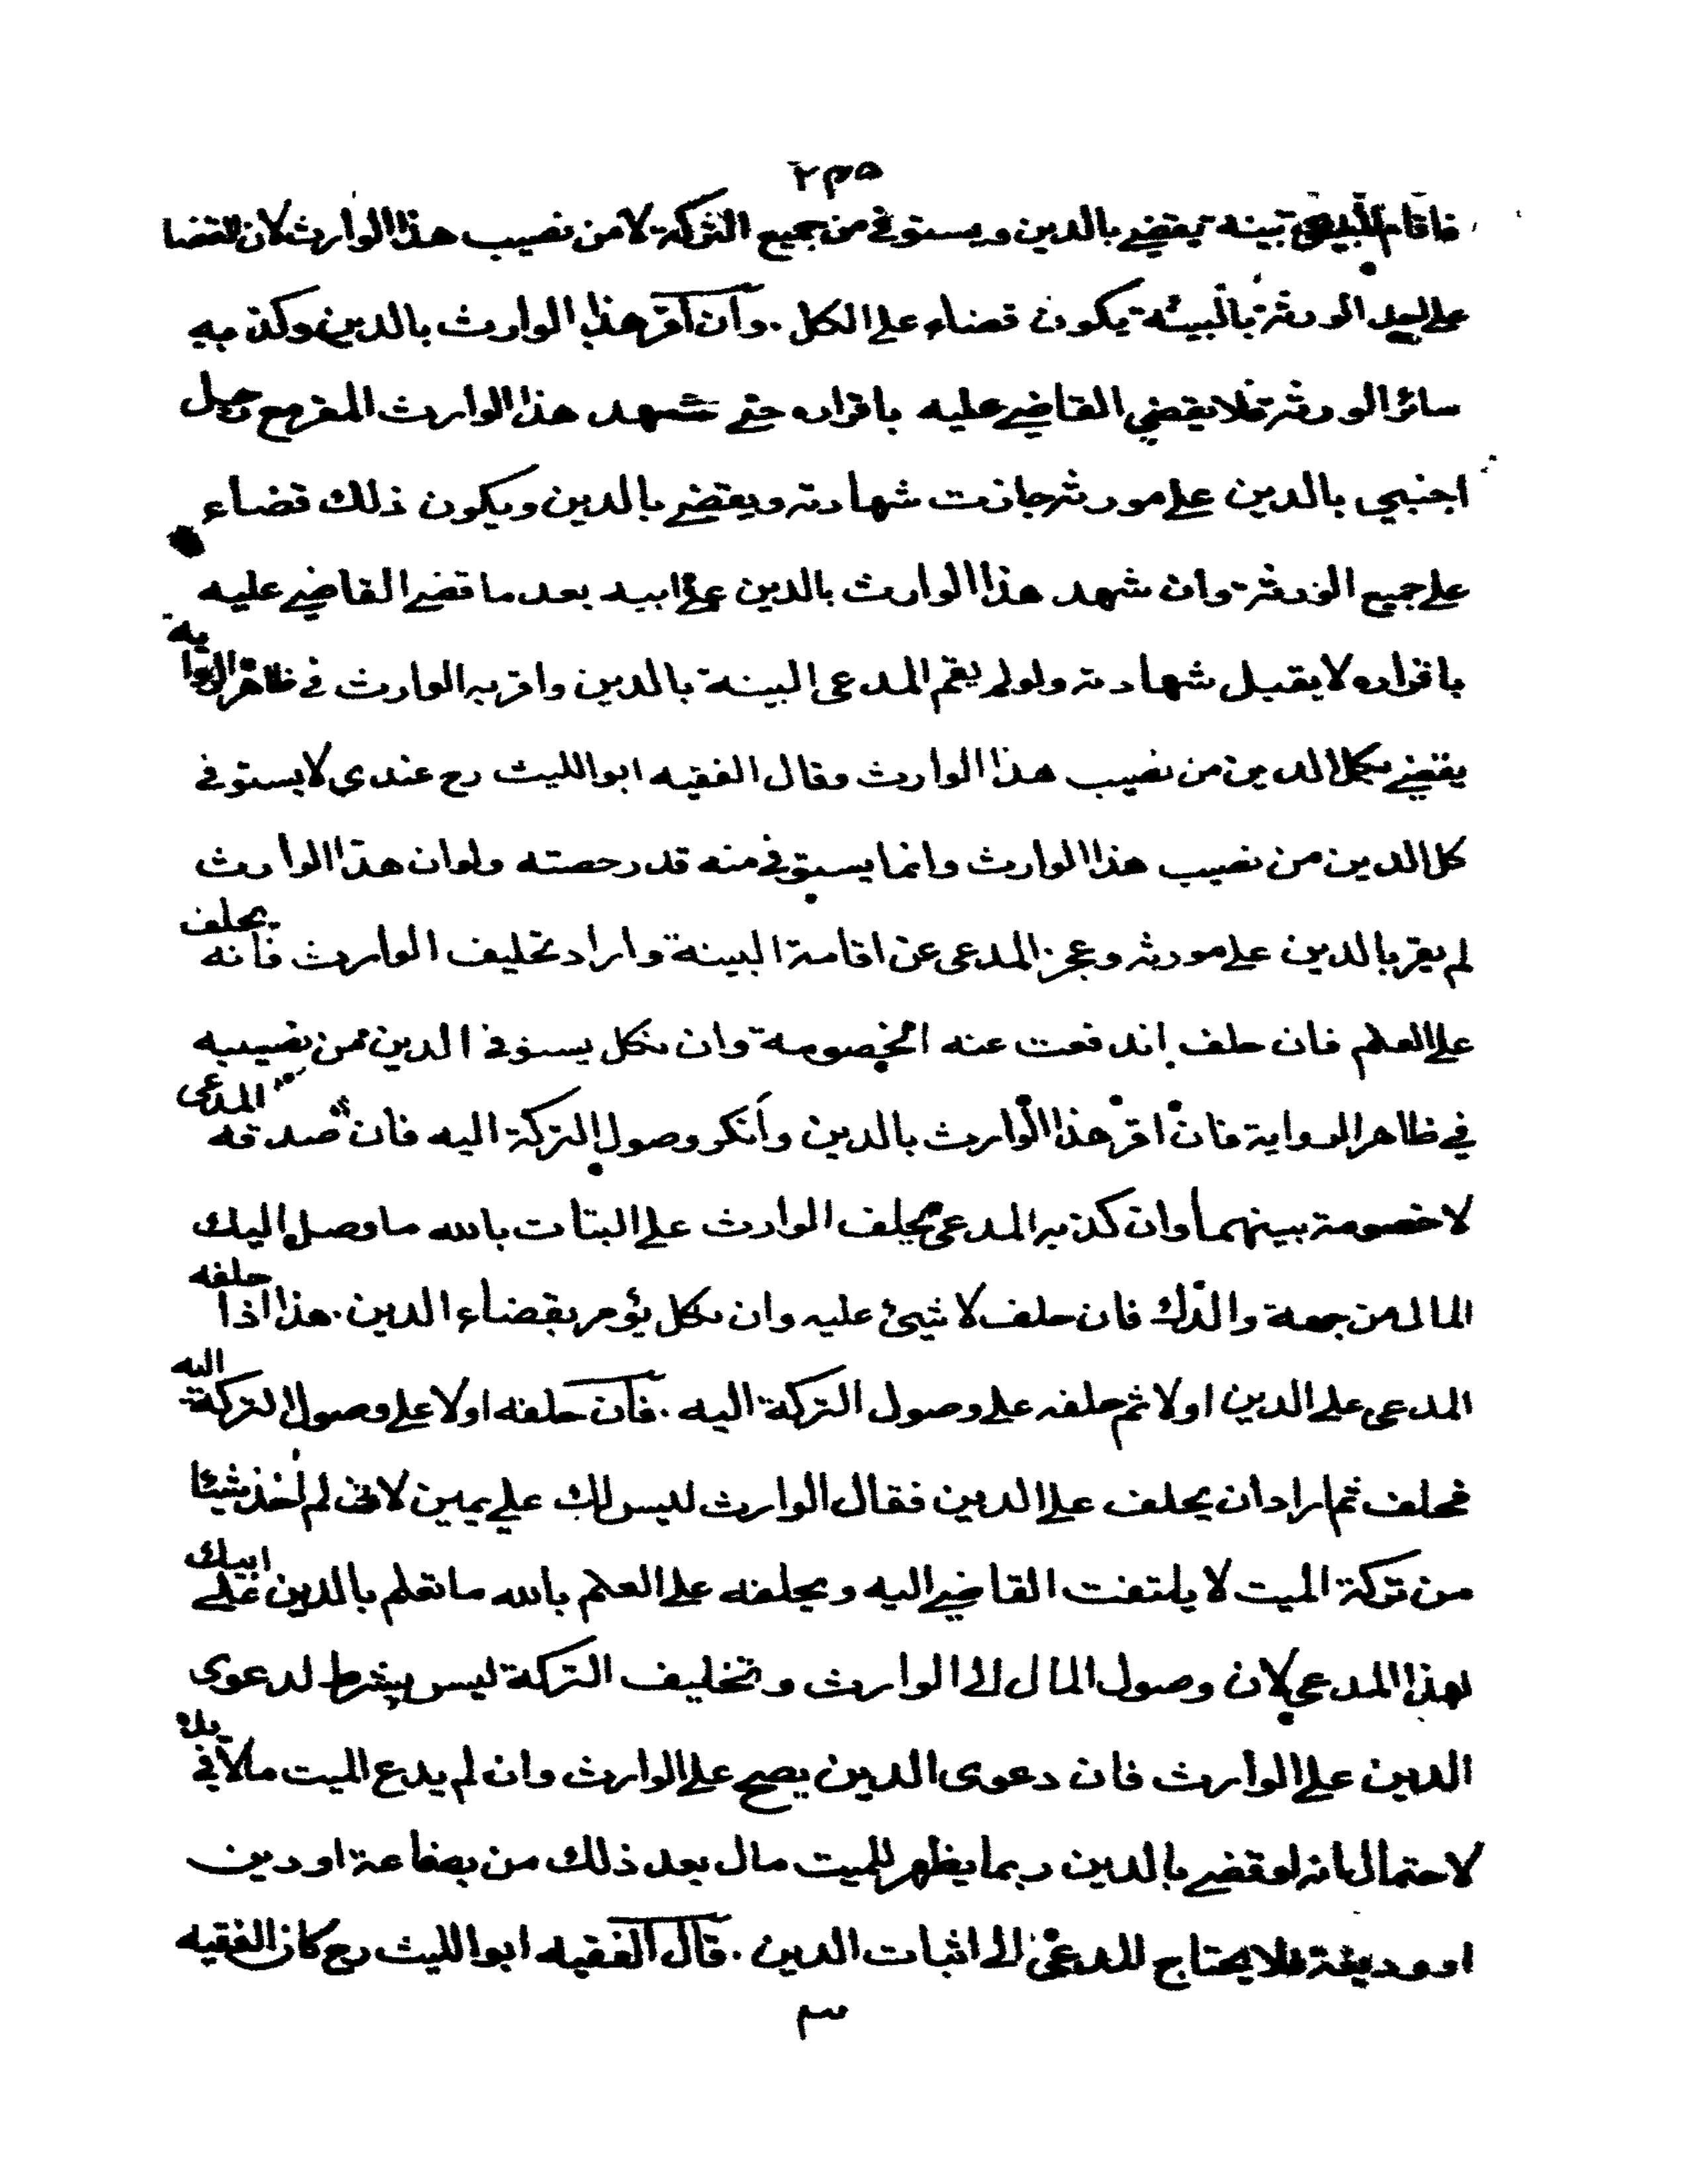 ٢٣٥
فاقام المدعي بينة يقضي بالدين ويستوفي من جميع التركة لا من نصيب هذا الوارث لان القضا
على احد الورثة بالبينة يكون قضاء على الكل . وان اقر هذا الوارث بالدين وكذبه
سائر الورثة فلا يقضي القاضي عليه باقراره حتى شهد هذا الوارث المقر مع رجل
اجنبي بالدين على مورثه جازت شهادته ويقضي بالدين ويكون ذلك قضاء
على جميع الورثة وان شهد هذا الوارث بالدين على ابيه بعد ما قضى القاضي عليه
باقراره لا يقبل شهادته ولو لم يقم المدعى البينة بالدين واقر به الوارث في ظاهر الرواية
يقضي بكل الدين من نصيب هذا الوارث وقال الفقيه ابو الليث رح عندى لا يستوفي
كل الدين من نصيب هذا الوارث وانما يستوفي منه قدر حصته ولو ان هذا الوارث
لم يقر بالدين على مورثه وعجز المدعى عن اقامة البينة واراد تحليف الوارث فانه يحلف
على العلم فان حلف اندفعت عنه الخصومة وان نكل يستوفي الدين من نصيبه
في ظاهر الرواية فان اقر هذا الوارث بالدين وانكر وصول التركة اليه فان صدقه المدعى
لا خصومة بينهما وان كذبه المدعى يحلف الوارث على البتات بالله ما وصل اليك
المال من جهة والدك فان حلف لا شيئ عليه وان نكل يؤمر بقضاء الدين . هذا اذا حلفه
المدعى على الدين اولا ثم حلفه على وصول التركة اليه . فان حلفه اولا على وصول التركة اليه
فحلف ثم اراد ان يحلف على الدين فقال الوارث ليس لك علي يمين لانى لم اخذ شيئا
من تركة الميت لا يلتفت القاضي اليه ويحلفه على العلم بالله ما تعلم بالدين على ابيك
لهذا المدعي لان وصول المال الى الوارث وتخليف التركة ليس بشرط لدعوى
الدين على الوارث فان دعوى الدين يصح على الوارث وان لم يدع الميت مالا في يده
لاحتمال انه لو قضي بالدين ربما يظهر للميت مال بعد ذلك من بضاعة او دين
او وديعة فلا يحتاج المدعى الى اثبات الدين . قال الفقيه ابو الليث رح كان الفقيه